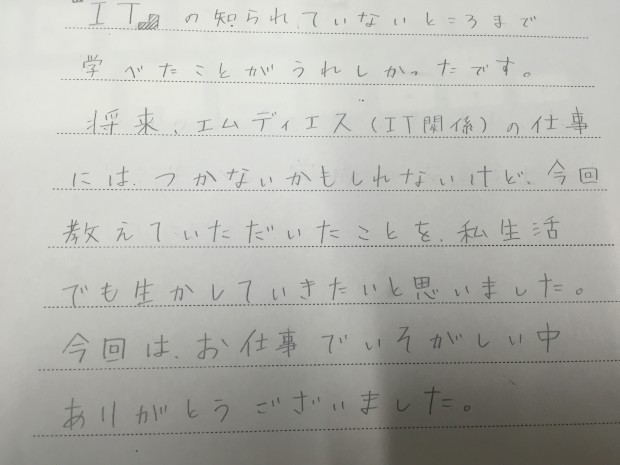 IT の知られていないところまで
学べたことがうれしかったです。
将来、エムディエス(IT関係)の仕事
には、つかないかもしれないけど、今回
教えていただいたことを、私生活
でも生かしていきたいと思いました。
今回は、お仕事でいそがしい中
ありがとうございました。